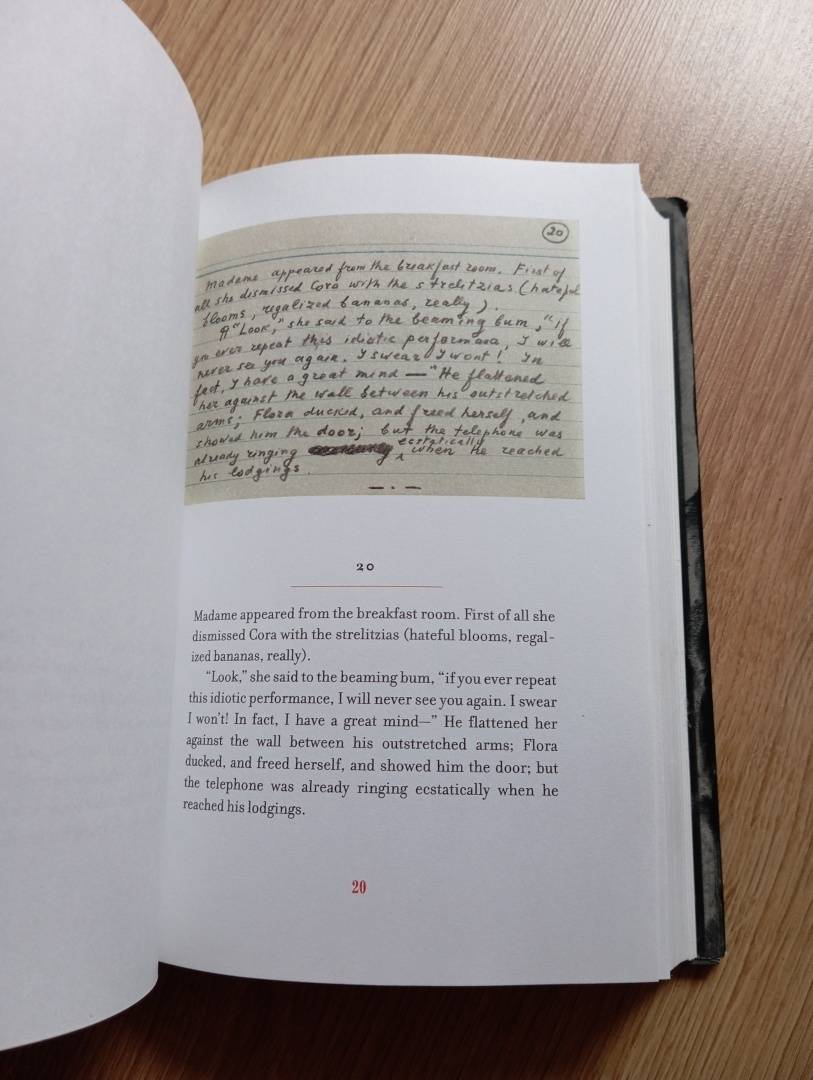 20
Madame appeared from the breakfast room. First of
all she dismissed Cora with the strelitzias (hateful
blooms, regalized bananas, really).
¶ "Look," she said to the beaming bum, "if
you ever repeat this idiotic performance, I will
never see you again. I swear I wont! In
fact, I have a great mind — "He flattened
her against the wall between his outstretched
arms; Flora ducked, and freed herself, and
showed him the door; but the telephone was
already ringing ecstatically when he reached
his lodgings.
20
Madame appeared from the breakfast room. First of all she
dismissed Cora with the strelitzias (hateful blooms, regal-
ized bananas, really).
“Look,” she said to the beaming bum, “if you ever repeat
this idiotic performance, I will never see you again. I swear
I won’t! In fact, I have a great mind—” He flattened her
against the wall between his outstretched arms; Flora
ducked, and freed herself, and showed him the door; but
the telephone was already ringing ecstatically when he
reached his lodgings.
20